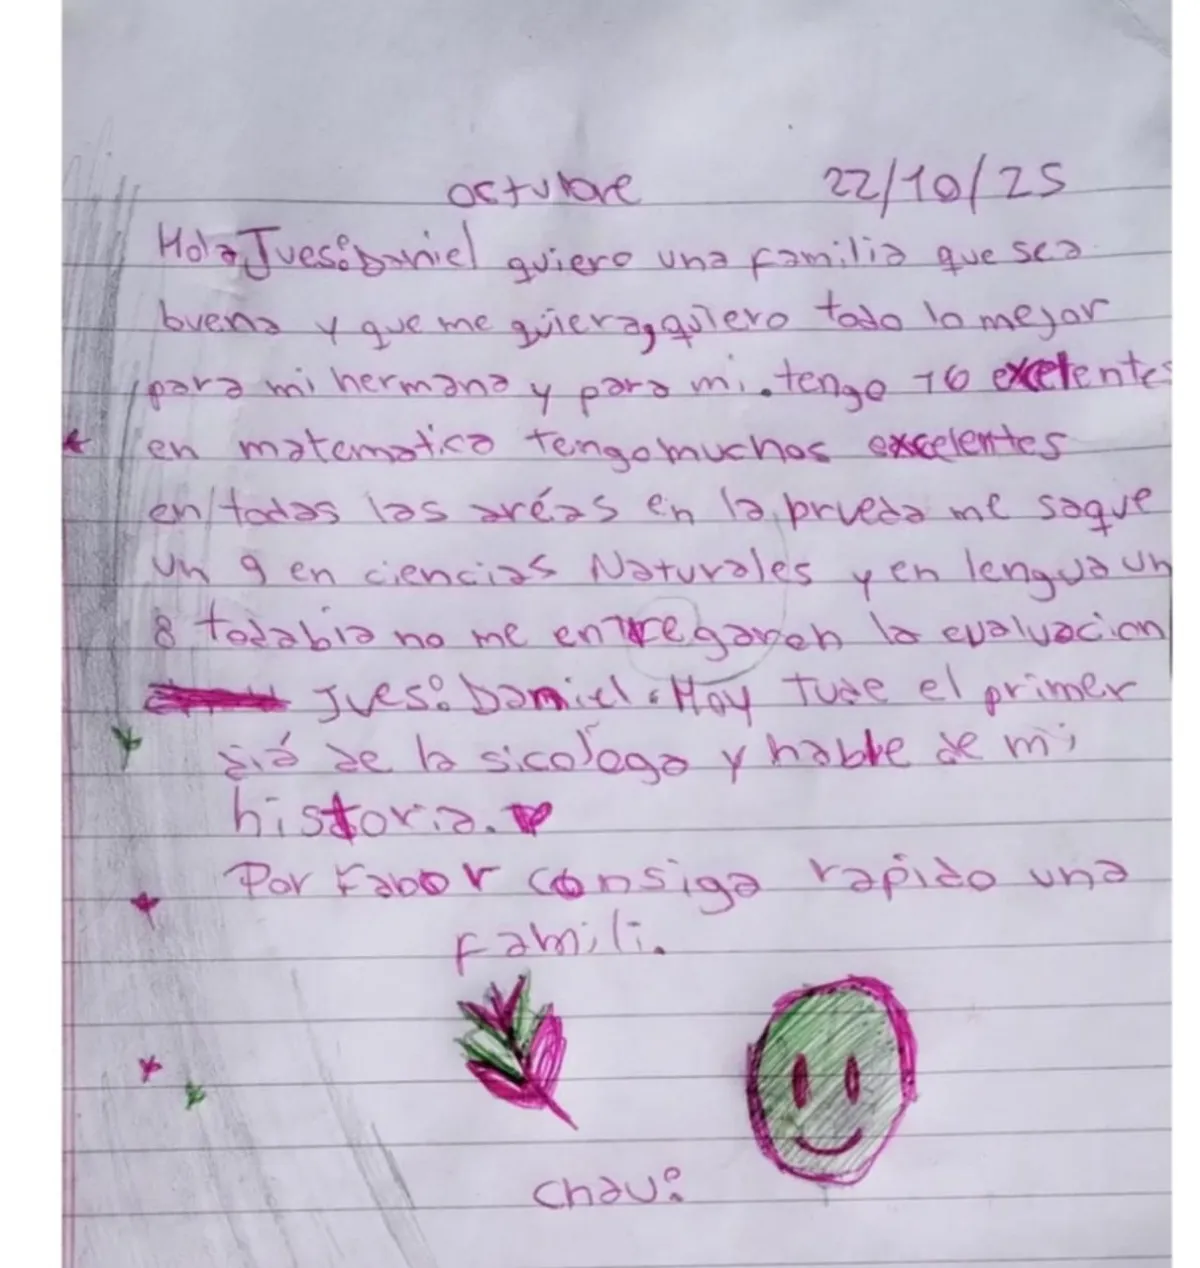 octubre 22/10/25
Hola Jues: Daniel quiero una familia que sea
buena y que me quiera, quiero todo lo mejor
para mi hermana y para mi. tengo 16 exelentes
en matematica tengo muchos excelentes
en todas las aréas en la prueda me saque
un 9 en ciencias Naturales y en lengua un
8 todabia no me entregaron la evaluacion
Jues: Daniel. Hoy tuve el primer
diá de la sicologa y hable de mi
historia.
Por Fabor consiga rapido una
Famili.
chau: